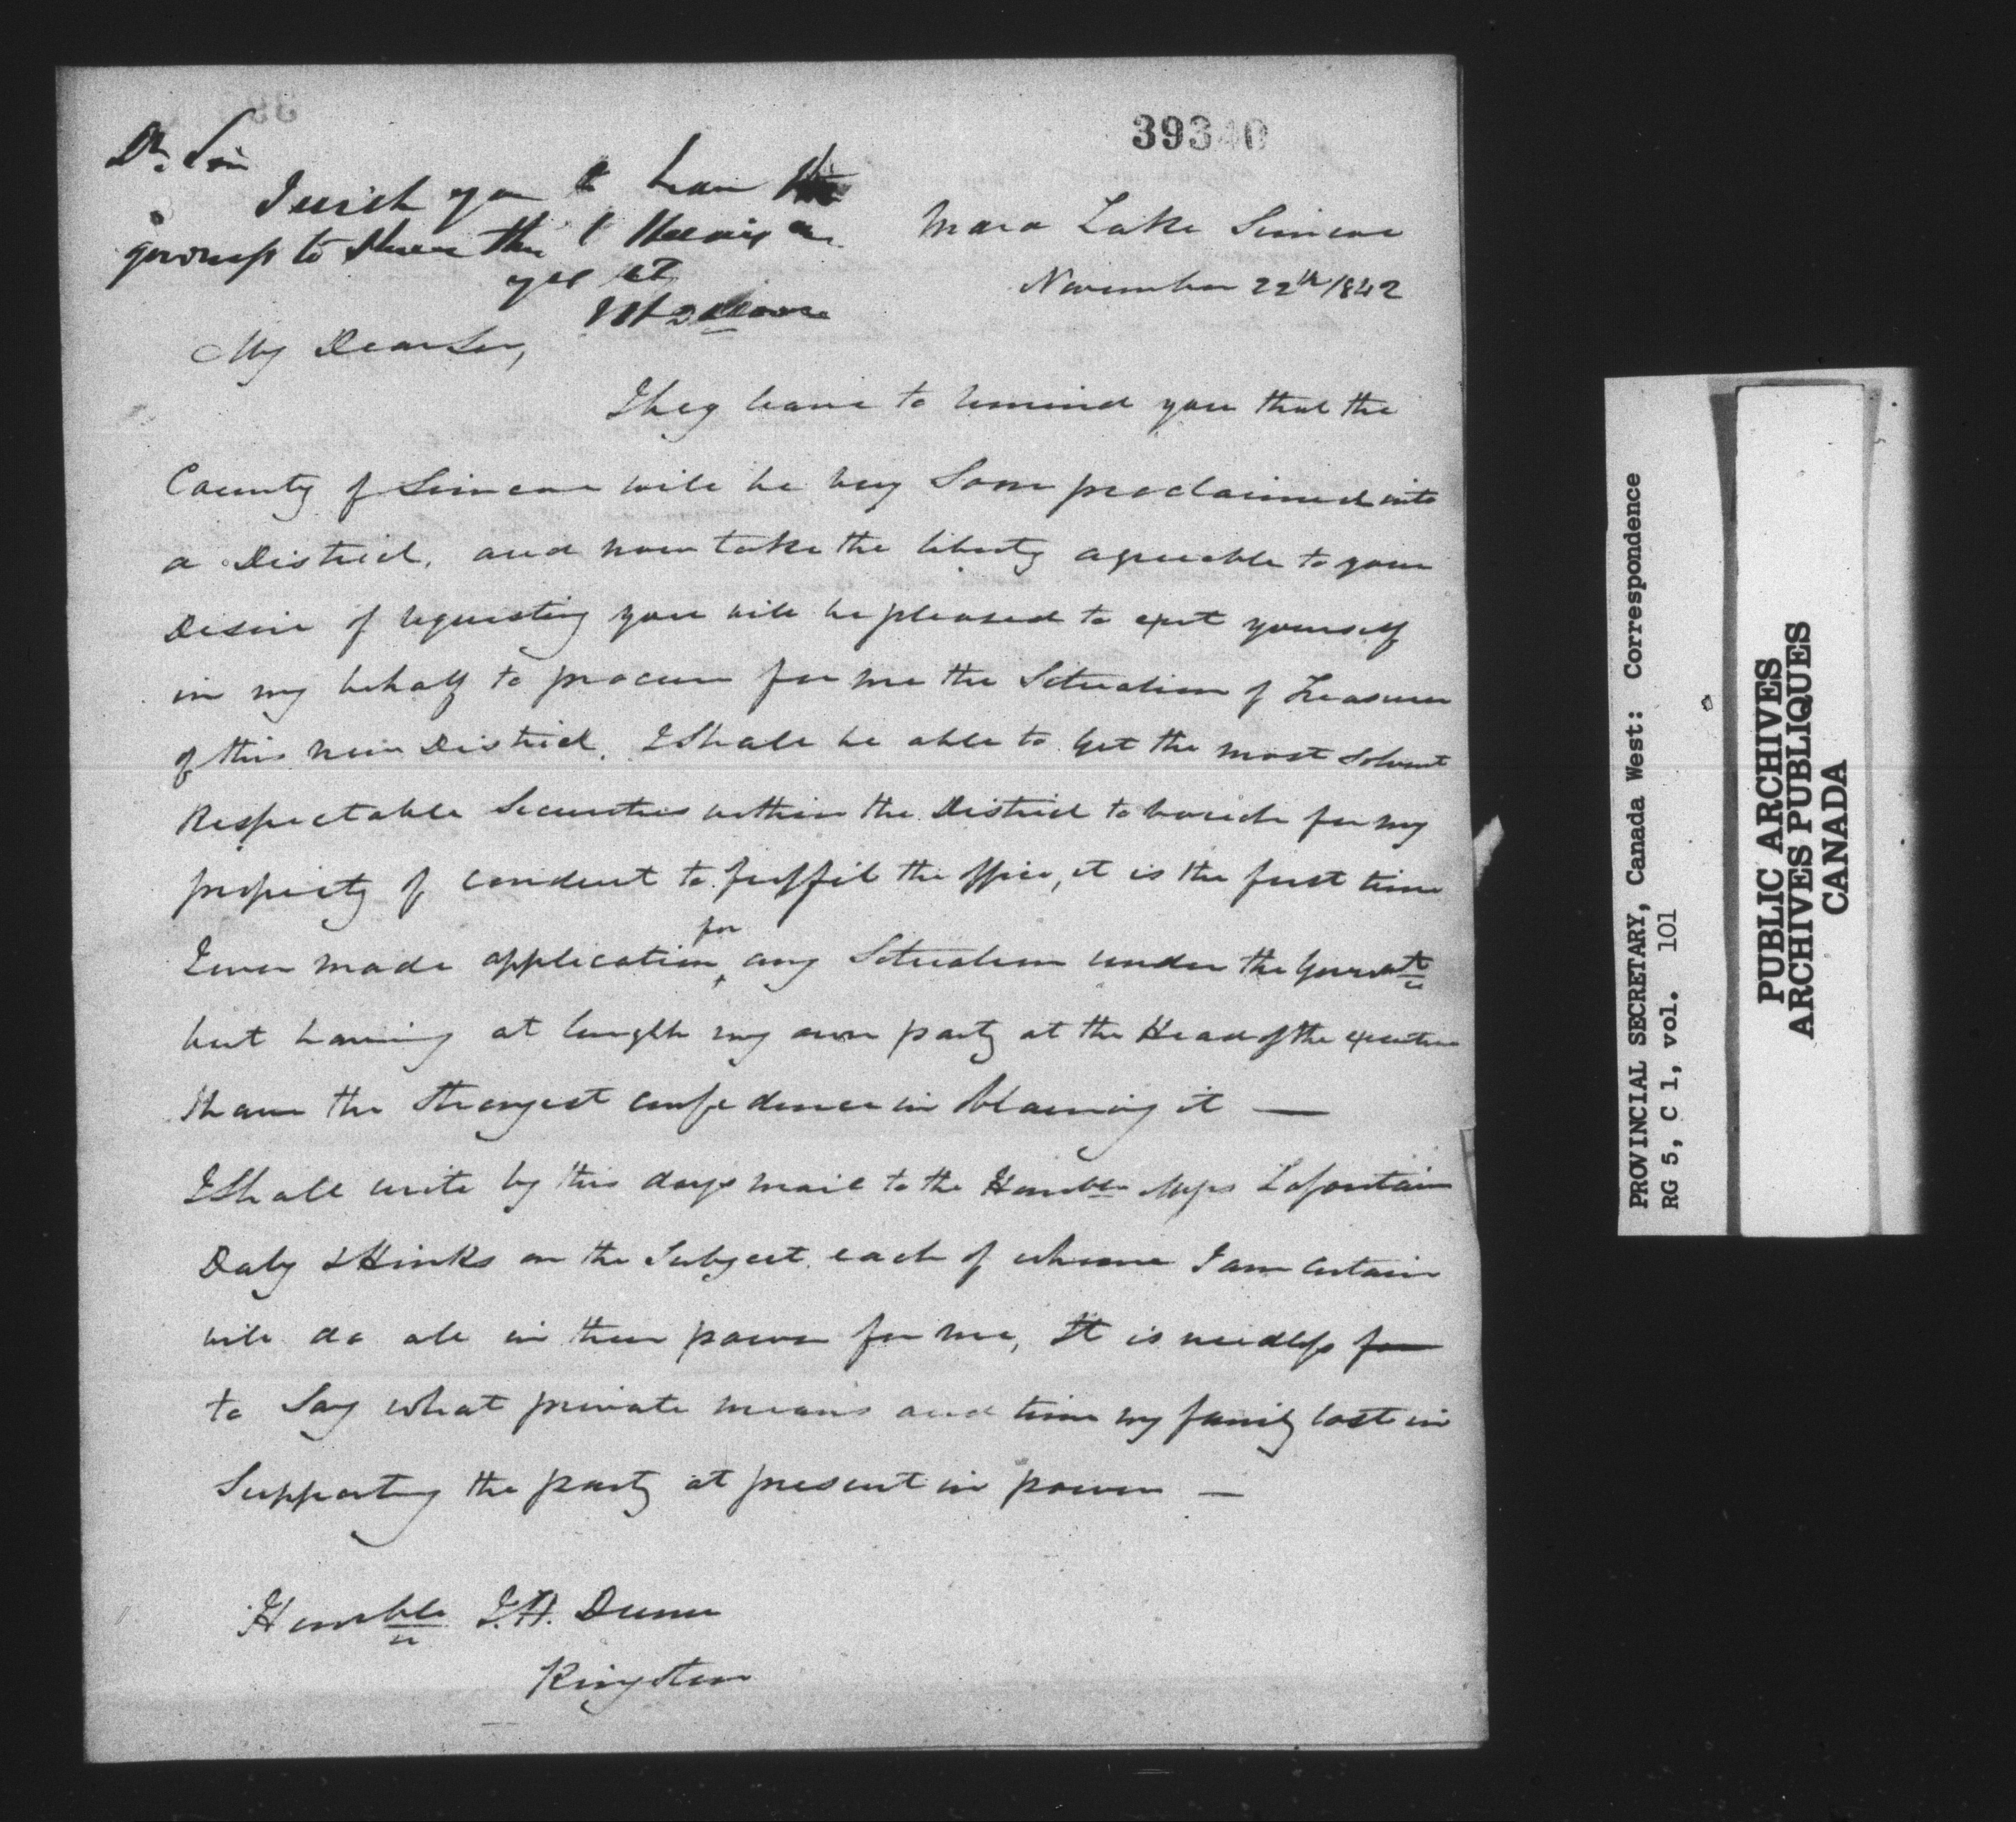 39340
Dr. Sir
I wish you to have the
goodness to show this to
Mara Lake Simcoe
November 22th 1842
My Dear Sir,
I beg leave to remind you that the
County of Simcoe will be very Soon proclaimed into
a District, and now take the liberty agreeable to your
Desire of requesting you will be pleased to exert yourself
in my behalf to procure for me the Situation of Treasurer
of this new District. I Shall be able to get the most Solvent
Respectable Securities within the District to bonds for my
propriety of conduct to fulfil the office, it is the first time
I ever made application for any Situation under the Governmt
but having at length my own party at the Head of the executive
I have the strongest confedence in obtaining it —
I Shall write by this days mail to the Honble Messrs Lafontain
Daly & Hinks on the Subject each of whome I am certain
will do all in their power for me, It is needless for
to Say what private means and time my family lost in
Supporting the party at present in power —
Honble J.H. Dunn
Kingston
PROVINCIAL SECRETARY, Canada West: Correspondence
RG 5, C 1, vol. 101
PUBLIC ARCHIVES
ARCHIVES PUBLIQUES
CANADA